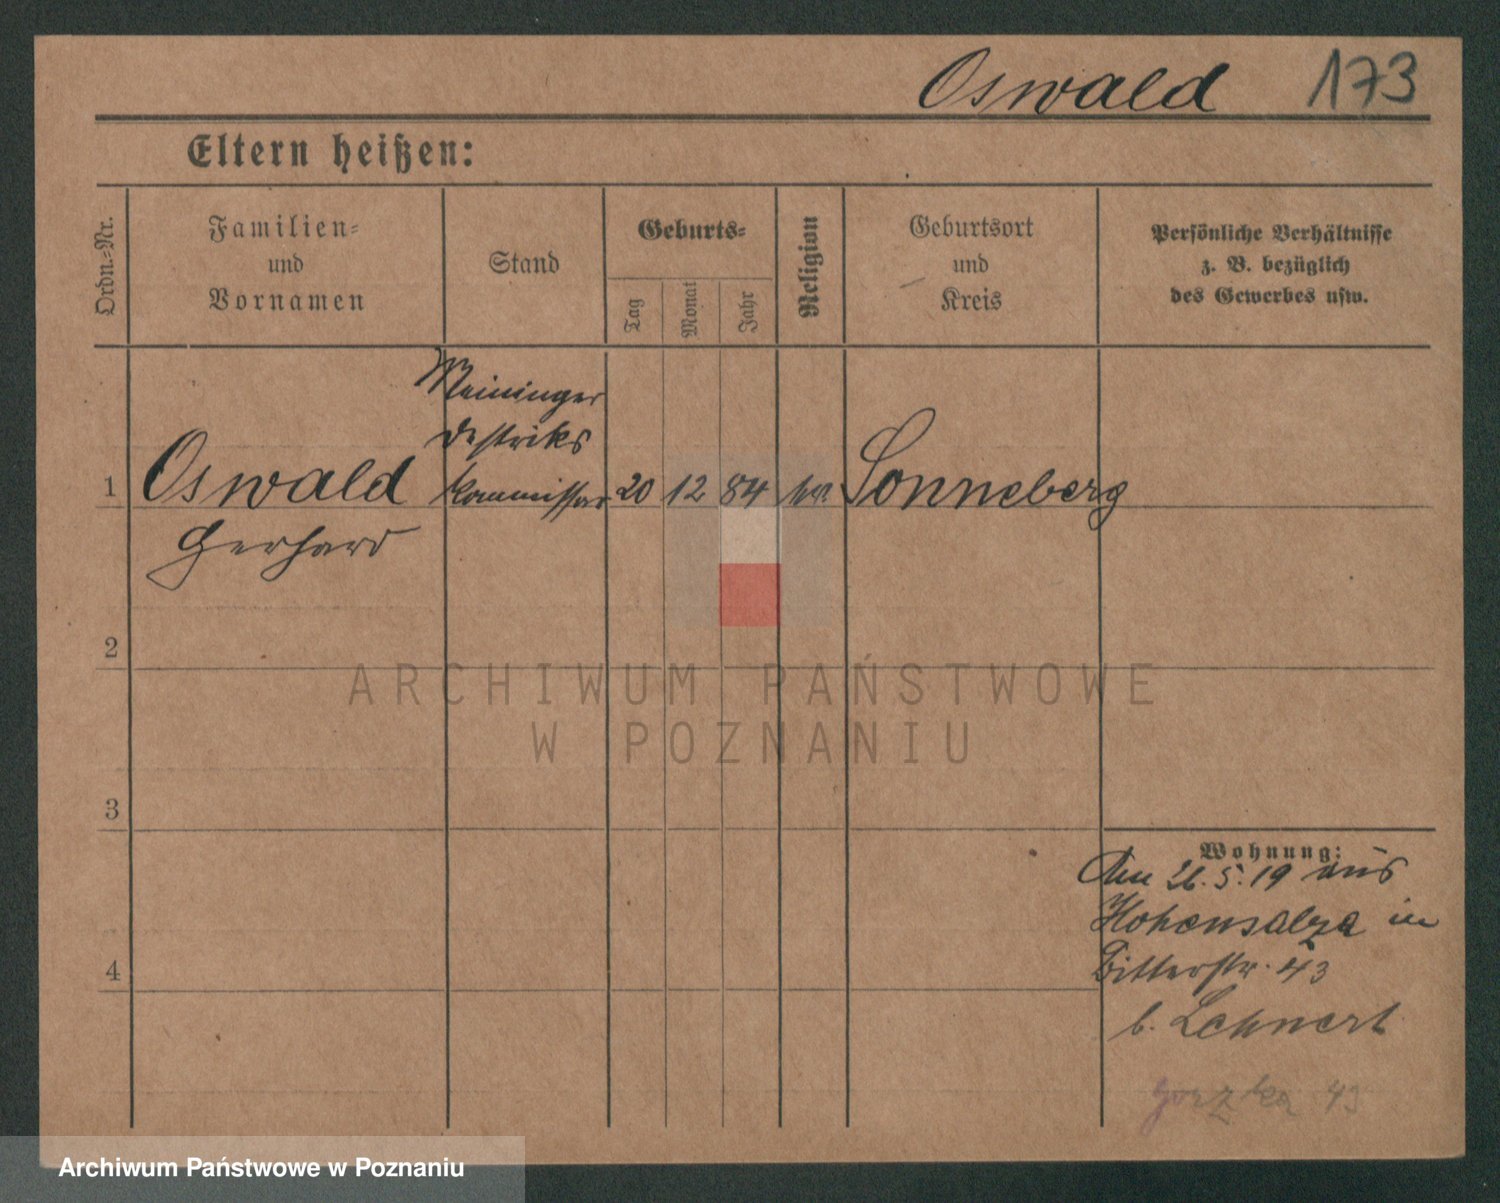 Oswald 173
Eltern heißen:
Ordn.-Nr.
Familien-
und
Vornamen
Stand
Geburts-
Tag
Monat
Jahr
Religion
Geburtsort
und
Kreis
Persönliche Verhältnisse
z. B. bezüglich
des Gewerbes usw.
Meininger
Destriks
1 Oswald Kommissar 20 12 84 Sonneberg
Gerhard
2
3
4
Wohnung:
Am 26.5.19 aus
Hohensalza in
Bitterstr. 43
b. Lehnert
Gorzka 43
ARCHIWUM PAŃSTWOWE
W POZNANIU
Archiwum Państwowe w Poznaniu